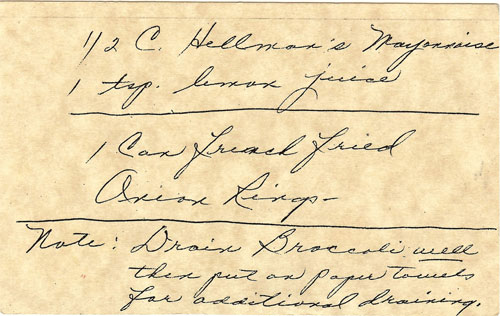 1/2 C. Hellman's Mayonnaise
1 tsp. lemon juice
1 Can French Fried
Onion Rings-
Note: Drain Broccoli well
then put on paper towels
for additional draining.